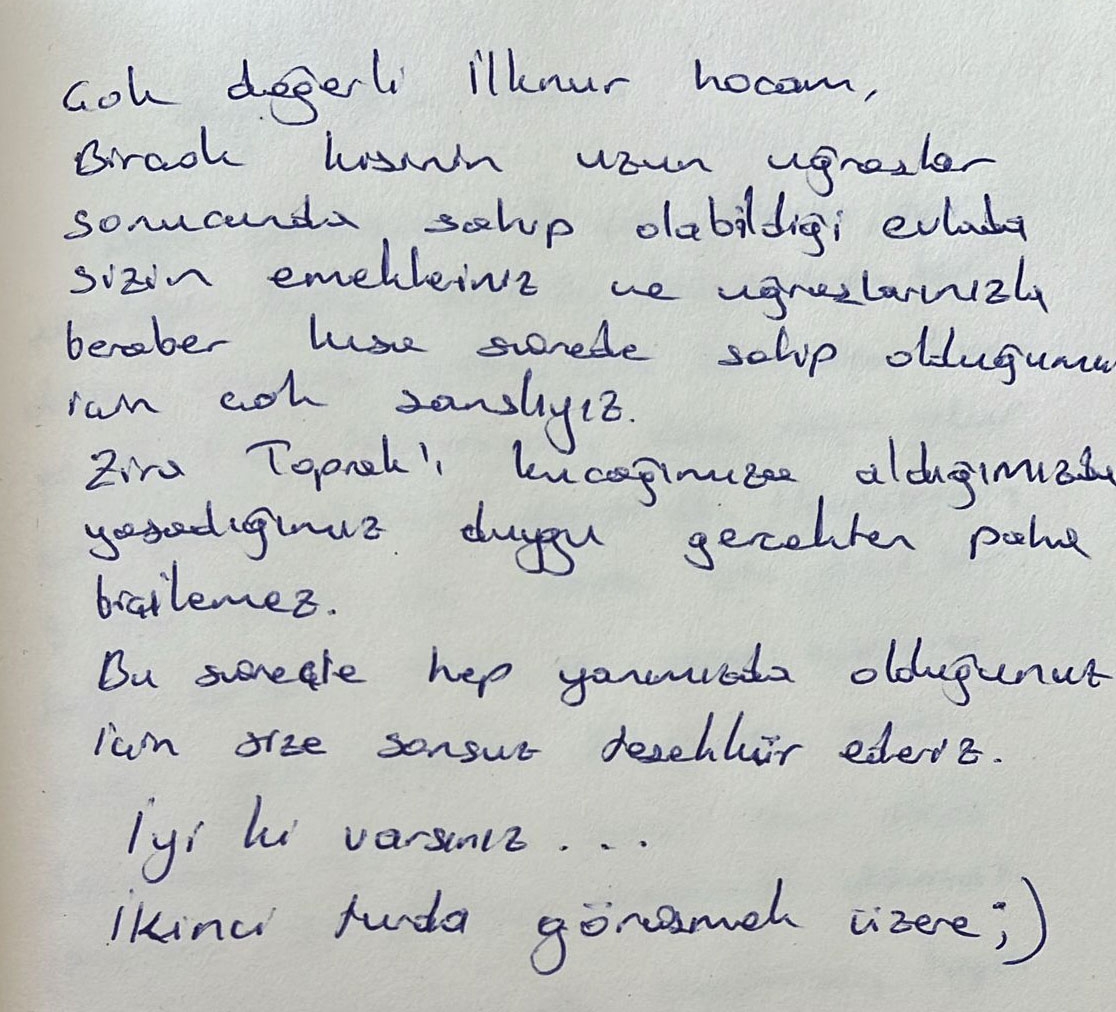 Çok değerli İlknur hocam,
Birçok kişinin uzun uğraşlar
sonucunda sahip olabildiği evlada
sizin emekleriniz ve uğraşlarınızla
beraber kısa sürede sahip olduğumu
için çok şanslıyız.
Zira Toprak'ı kucağımıza aldığımızda
yaşadığımız duygu gerçekten paha
biçilemez.
Bu süreçte hep yanımızda olduğunuz
için size sonsuz teşekkür ederiz.
İyi ki varsınız...
İkinci turda görüşmek üzere ;)